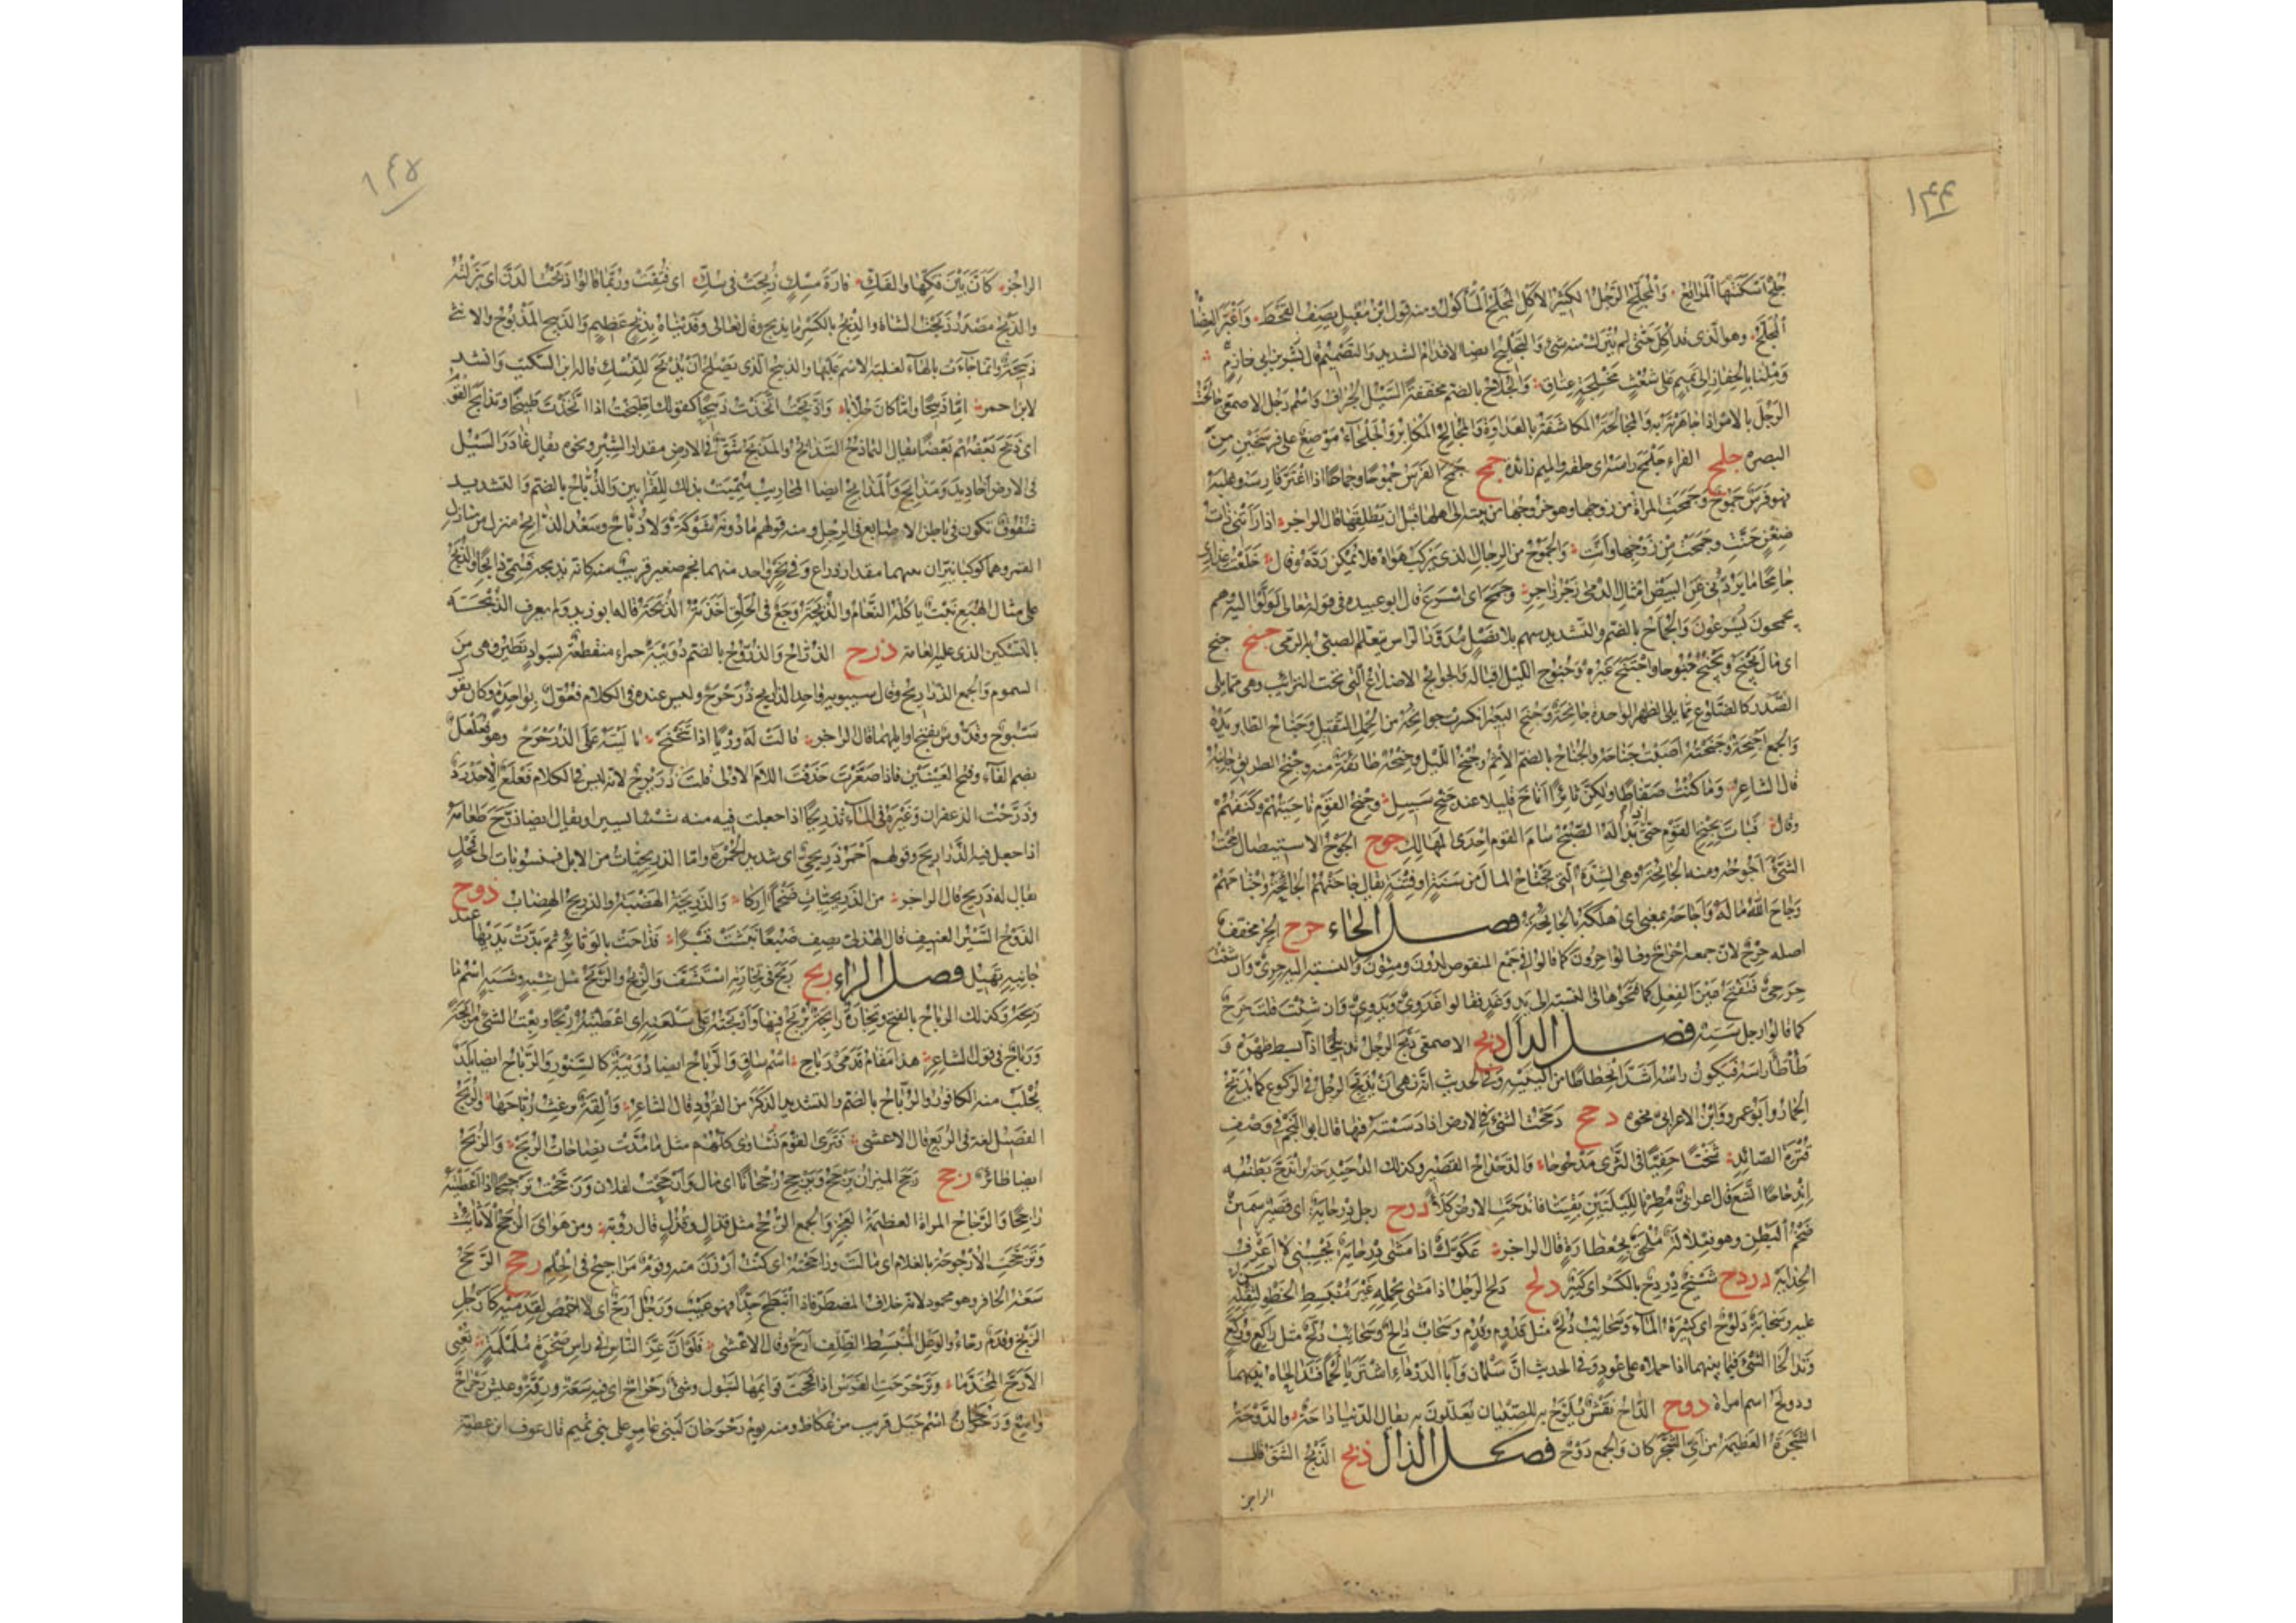 ١٤٤
جُلْحٌ اَسْكَنَتْهَا المَرَابِعُ وَالْمُجَلِّحُ الرَّجُلُ الكَثِيرُ الاَكْلِ المُجَلَّحُ الْمَأكُولُ ومنه قول ابْن مُقْبِلٍ يَصِفُ القَحْطَ
الْمُجَلَّحْ وهو الّذى قد اُكِلَ حَتّى لم يُتْرَك منه شىٌ وَالتَّجْلِيحُ ايضا الاقدام الشديد وَالتَّصْمِيمُ قال بشر بن ابى خازِمٍ
وَمِلْنَا بِالْجِفَارِ اِلى تَمِيمٍ عَلى شُعْثٍ مُجَلِّحَةٍ عِتَاقِ وَالجُلَاحُ بالضم مخففةً السَّيْلُ الجُرَافُ وَاسْمُ رَجُل الاصمعى جَالَحْتُ
الرَّجُلَ بالاَمْرِ اذا جَاهَرْتَهُ به وَالمُجَالَحَةُ المكاشَفَةُ بالعَدَاوَةِ وَالمُجَالِحُ المُكَابِرُ وَجَلْحَاءُ مَوْضِعٌ على فَرْسَخَيْنِ مِنَ
البصرة جلمح الفراء جَلْمَحَ رَاسَهُ اى حلقه والميم زائدة جمح جَمَحَ الفَرَسُ جُمُوحًا وجِمَاحًا اذا اعْتَزَّ فَارِسَهُ وغَلَبَهُ
فهو فَرَسٌ جَمُوحٌ وَجَمَحَتِ المراةُ من زوجها وهو خروجها من بيته الى اهلها قبل ان يُطَلِّقَهَا قال الراجز اذا رَاَتْنِى ذَاتُ
ضِغْنٍ حَنَّتْ وَجَمَحَتْ مِنْ زَوْجِهَا وَاَنَّتْ وَالجَمُوحُ من الرجال الذى يَرْكَبُ هَوَاهُ فلا يُمْكِنُ رَدُّهُ وقال خَلَعْتُ عِذَارِى
جَامِحًا مَا يَرُدُّنِى عَنِ البِيضِ اَمْثَالِ الدُّمَى زَجْرُ زَاجِرِ وجَمَحَ اى اَسْرَعَ قال ابو عبيده فى قوله تعالى لَوَلَّوْا اِلَيْهِ وَهم
يجمحون يُسْرِعُونَ وَالجُمَّاحُ بالضم والتشديد سهم بلا نَصْلٍ مُدَوَّرُ الرّاسِ يَتَعَلَّمُ الصبىُّ به الرمى جنح جنح
اى مَالَ يَجْنَحُ ويَجْنُحُ جُنُوحًا واجْتَنَحَ غَيْرَهُ وَجُنُوحُ اللّيْلِ اقباله وَالجوانِحُ الاَضْلَاعُ الّتى تحت التَّرائِبِ وهى ممّا يلى
الصَّدْرَ كالضّلُوع ممّا يلى الظهر الواحدة جَانِحَةٌ وَجُنِحَ البَعِيرُ انكسرت جوانِحُهُ من الحِمْلِ الثَّقِيلِ وجَنَاحُ الطّايِر يَدُهُ
وَالجمع اَجْنِحَةٌ وَجَنَحْتُهُ اَصَبْتُ جَنَاحَهُ والجُنَاحُ بالضم الاثم وجُنْحُ اللَّيْلِ وجِنْحُهُ طَائِفَةٌ منه وجِنْحُ الطريق جَانِبُهُ
قال الشاعر وَمَا كُنْتُ ضَفَّاطًا ولكِنَّ ثَائِرًا اَنَاخَ قليلا عند جِنْحِ سَبِيلِ وجِنْحُ القَوْمِ نَاحِيَتُهُمْ وكَنَفُهُمْ
وقال فَبَاتَ بِجِنْحِ القَوْمِ حَتّى اِذَا بَدَا لَهُ الصُّبْحُ سَامَ القَوْمَ اِحْدَى المَهَالِكِ جوح الجَوْحُ الاستيصال جُحْتُ
الشَّىْءَ اَجُوحُهُ ومنه الجَائِحَةُ وهى الشِّدَّةُ الّتى تَجْتَاحُ المال من سَنَةٍ او فِتْنَةٍ يقال جَاحَتْهُمْ الجَائِحَةُ وَاجْتَاحَتْهُمْ
وَجَاحَ اللّٰهُ مَالَهُ وَاَجَاحَهُ بمعنى اى اَهْلَكَهُ بِالجَايِحَةِ فصل الحاء حرح الحِرُ مخفف
اصله حِرْحٌ لان جمعه اَحْرَاحٌ وقالوا حِرُونَ كما قالوا فى جَمْعِ المنقوص لِدُونَ ومِئُونَ وَالنسبة اليه حِرِىٌّ وَان شئتَ
حِرَحِىٌّ فَتَفْتَحُ عَيْنَ الفِعْلِ كما فَتَحُوهَا فى النسبة الى يَدٍ وغَدٍ فقالوا غَدَوِىٌّ وَيَدَوِىٌّ وَان شِئْتَ قلتَ حَرِحٌ
كما قالوا رجل سَتِهٌ فصل الدال دبح الاصمعى دَبَّحَ الرجل تدبيحًا اذا بسط ظهره و
طَأْطَأَ راسَهُ فَيَكُونُ راسُهُ اَشَدَّ انْحِطَاطًا من اَلْيَتَيْهِ وفى الحديث انّهُ نهى اَنْ يُدَبِّحَ الرجل فى الركوع كما يُدَبِّحُ
الحِمَارُ وَابو عمرو وابْن الاعرابى نحوه دحح دَحَحْتُ الشَّىْءَ فى الارض اذا دَسَسْتَهُ فيها قال ابو النَّجْم فى وَصْفِ
قُتْرَةِ الصّائِدِ بَيْتًا خَفِيًّا فى الثَّرَى مَدْحُوحَا وَالدَّحْدَاحُ القَصِيرُ وكذلك الدَّحْيدَحَةُ وانْدَحَّ بَطْنُهُ
اِنْدِحَاحًا اتَّسَعَ قال اعرابى مُطِرْنَا لِلَيْلَتَيْنِ بَقِيَتَا فَانْدَحَّتِ الارضُ كَلَأً درح رجل دِرْحَايَةٌ اى قَصِيرٌ سَمِينٌ
ضَخْمُ البَطْنِ وهو فِعْلَايَةٌ مُلْحَقٌ بِجِعْظَارَةٍ قال الراجز عَكَوَّكٌ اذا مَشَى دِرْحَايَهْ يَحْسِبُنِى لا اَعْرِفُ
الحِدَايَهْ دردح شَيْخٌ دِرْدِحٌ بالكسر اى كَبِيرٌ دلح دَلَحَ الرجلُ اذا مَشَى بِحِمْلِهِ غَيْرَ مُنْبَسِطِ الخَطْوِ لثِقَلِهِ
عليه وسَحَابَةٌ دَلُوحٌ اى كثيرة المَاءِ وسَحَائِبُ دُلُحٌ مثل قَدُومٍ وقُدُمٍ وَسَحَابٌ دَالِحٌ وسَحَائِبُ دُلَّحٌ مثل رَاكِعٍ ورُكَّعٍ
وَتَدَالَحَا الشَّىْءَ فيما بينهما اذا حملاه على عُودٍ وفى الحديث انَّ سَلْمَانَ وَاَبَا الدَّرْدَاءِ اشْتَرَيَا لَحْمًا فَتَدَالَحَاهُ بَيْنَهُمَا
ودولحُ اسم امراة دوح الدَّاحُ نَقْشٌ يُلَوَّحُ به لِلصِّبْيَان يُعَلَّلُونَ به يقال الدُّنيَا دَاحَةٌ والدَّوْحَةُ
الشَّجَرَةُ العَظِيمَةُ من اَىِّ الشَّجَرِ كان وَالجمع دَوْحٌ فصل الذال ذبح الذَّبْحُ الشَّقُّ قال
الراجز
١٤٥
الراجز كَاَنَّ بَيْنَ فَكِّهَا والفَكِّ فَارَةَ مِسْكٍ ذُبِحَتْ فى سُكِّ اى فُتِقَتْ ورُبَّمَا قالوا ذَبَحْتُ الدَّنَّ اى بَزَلْتُهُ
والذَّبْحُ مَصْدَرُ ذَبَحْتُ الشاة والذِّبْحُ بالكَسْرِ ما يذبح وقال تعالى وفَدَيْنَاهُ بِذِبْحٍ عَظِيمٍ وَالذبيح المَذْبُوحُ والانثى
ذَبِيحَةٌ وانّما جَاءَت بالهَاءِ لغلبة الاسْمِ عَلَيْهَا والذبيحُ الّذى يَصْلُحُ اَنْ يُذْبَحَ لِلنُّسُكِ قال ابن السّكّيت وَانشد
لابن احمر اِمَّا ذَبِيحًا واِمَّا كَانَ حُلَّانَا وَاذَّبَحْتُ اتَّخَذْتُ ذَبِيحًا كقولك اطَّبَخْتُ اذا اتَّخَذْتَ طَبِيخًا وتَذَابَحَ القَوْمُ
اى ذَبَحَ بَعْضُهُمْ بَعْضًا يقال التَّمَادُحُ التَّذَابُحُ والمَذْبَحُ شَقٌّ فى الارضِ مقدار الشِّبْرِ ونحوه يقال غَادَرَ السَّيْلُ
فى الارض اَخَادِيدَ وَمَذَابِحَ وَالْمَذَابِحُ ايضا المَحَارِيبُ سُمِّيَتْ بذلك لِلْقَرَابِينِ وَالذُّبَّاحُ بالضم وَالتشديد
شُقُوقٌ تكون فى باطن الاصابع فى الرجل ومنه قولهم مَا دُونَهُ شَوْكَةٌ وَلا ذُبَّاحٌ وسَعْدُ الذّابِحُ منزل من منازل
القمر وهما كوكبان نَيِّرَانِ بينهما مقدار ذراع وفى نَحْرِ واحد منهما نجم صغير قريب منه كانّه يذبحه فَسُمِّىَ ذابِحًا والذُّبَحُ
على مثال الهُبَعِ نَبْتٌ يَاكُلُهُ النَّعَامُ والذُّبَحَةُ وَجَعٌ فى الحَلْقِ اَخَذَتْهُ الذُّبَحَةُ قاله ابو زيد وَلم يعرف الذُّبْحَةَ
بالتَّسْكِين الذى عليه العامّة ذرح الذُّرَّاحُ وَالذُّرُّوحُ بالضم دُوَيْبَةٌ حمراء منقطةٌ بسَوادٍ تَطِيرُ وهى من
السموم وَالجمع الذَّرَارِيحُ وقال سيبويه واحد الذَّرارِيح ذُرَحْرَحٌ وليس عنده فى الكلام فُعُّولٌ بِوَاحِدَةٍ وكان يقول
سَبُّوحٌ وقَدُّوسٌ بِفتح اوائلهما قال الراجز قالَتْ لَهُ وَرْيًا اذا تَنَحْنَحَ يَا لَيْتَهُ يُسْقَى عَلَى الذُّرَحْرَحِ وهو فُعَلْعَلٌ
بضم الفَاءِ وفتح العَيْنَيْنِ فاذا صَغَّرْتَ حَذَفْتَ اللَّامَ الاُولى قلتَ ذُرَيْرِحٌ لانّه ليس فى الكلام فَعْلَعٌ اِلّا حَدْرَدٌ
وذَرَّحْتُ الزعفران وَغَيْرَهُ فى المَاءِ تَذْرِيحًا اذا جعلت فيه منه شَيْئًا يسيرا ويقال ايضا ذَرَّحَ طَعَامَهُ
اذا جعل فيه الذَّرارِيحَ وقولهم اَحْمَرُ ذَرِيحِىٌّ اى شديد الحُمْرَةِ وامّا الذَّرِيحِيَّاتُ من الابل فمنسوبات الى فَحْلٍ
يقال له ذَرِيحٌ قال الراجز من الذَّرِيحِيَّاتِ ضَخْمًا آرِكَا وَالذَّرِيحَةُ الهَضْبَةُ وَالذرِيحُ الهِضَابُ ذوح
الذَّوْحُ السَّيْرُ العنيف قال الهذلىّ يصف ضَبُعًا نَبَشَتْ قَبْرًا فَذَاحَتْ بالوَتَائِرِ ثُمَّ بَدَّتْ يَدَيْهَا عند
جَانِبِهِ تَهِيلُ فصل الراء ربح رَبِحَ فى تجارته اسْتَشَفَّ وَالرِّبْحُ والرَّبَحُ مثل شِبْهٍ وشَبَهٍ اسْمُ مَا
رَبِحَهُ وكذلك الرَّبَاحُ بالفتح وتِجَارَةٌ رَابِحَةٌ يُرْبَحُ فيها وَاَرْبَحْتُهُ عَلى سِلْعَتِهِ اى اعْطَيْتُهُ رِبْحًا وبِعْتُ الشَّىْءَ مُرَابَحَةً
وَرَبَاحٌ فى قول الشاعر هذا مَقَامُ قَدَمَىْ رَبَاحِ اسْمُ سَاقٍ وَالرَّبَاحُ ايضا دُوَيْبَةٌ كالسِّنَّوْرِ والرَّبَاحُ ايضا بَلَدٌ
يُجْلَبُ منه الكافورُ والرُّبَّاحُ بالضم والتشديد الذَّكَرُ من القُرُودِ قال الشاعر وَاِلْقَةٌ تُرْغِثُ رُبَّاحَهَا والرُّبَحُ
الفَصِيلُ لغة فى الرُّبَعِ قال الاعشى فَتَرَى القَوْمَ نَشَاوَى كُلَّهُمْ مثل مَا مُدَّتْ نِصَاحَاتُ الرُّبَحْ وَالرُّبَحُ
ايضا طَائِرٌ رجح رَجَحَ الميزانُ يَرْجَحُ وَيَرْجِحُ رُجْحَانًا اى مَالَ وَاَرْجَحْتُ لفلان وَرَجَّحْتُ تَرْجِيحًا اذا اَعْطَيْتَهُ
رَاجِحًا وَالرَّجَاحُ المراة العظيمة العَجُزِ وَالجمع الرُّجُحُ مثل قَذَالٍ وقُذُلٍ قال رؤبة ومن هَوَاىَ الرُّجُحُ الاَثَائِثُ
وَتَرَجَّحَتِ الاُرْجُوحَةُ بالغلام اى مَالَتْ ورَاجَحْتُهُ اى كنتُ اَرْزَنَ منه وقومٌ مَرَاجِيحُ فى الحِلْمِ رحح الرَّحَحُ
سَعَةُ الحافر وهو محمود لانه خِلَافُ المُصْطَرِّ فاذا انْبَطَحَ جِدًّا فهو عَيْبٌ وَرَجُلٌ اَرَحُّ اى لا اَخْمَصَ لقدميه كَاَرْجُلِ
الزَّنْجِ وقَدَمٌ رَحَّاءُ والوَعِلُ المُنْبَسِطُ الظِّلْفِ اَرَحُّ وقال الاعْشى فَلَوْ اَنَّ عِزَّ النَّاسِ فى راسِ صَخْرَةٍ مُلَمْلَمَةٍ تُعْيِى
الاَرَحَّ المُخَدَّمَا وَتَرَحْرَحَتِ الفَرَسُ اذا فَحَجَتْ قوائمها لتبول وشىٌ رَحْرَاحٌ اى فيه سَعَةٌ ورِقَّةٌ وعيش رَحْرَاحٌ
وَاسِعٌ وَرَحْرَحَانُ اسْم جَبَل قريب من عُكاظ ومنه يوم رَحْرَحَانَ لَبنى عَامِرٍ على بنى تميم قال عوف ابن عطية